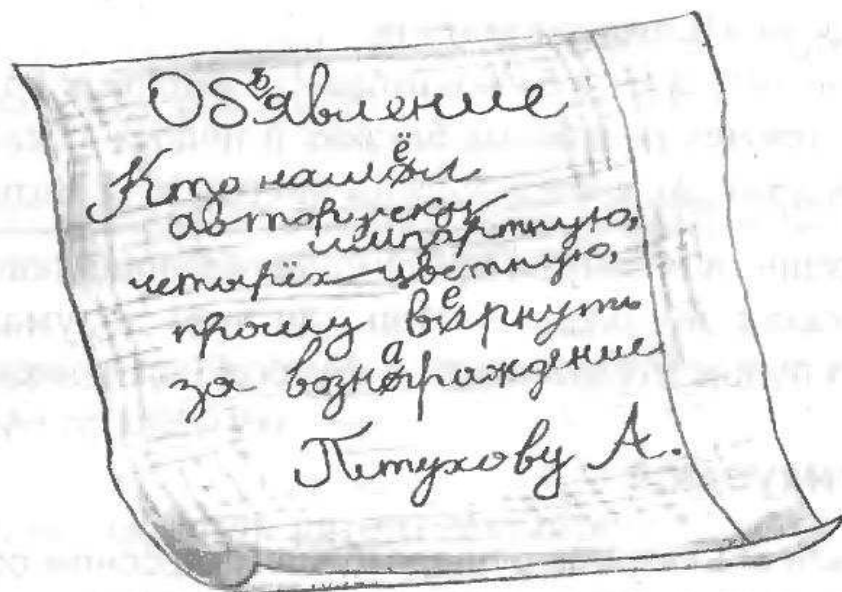 Объявление
Кто нашёл
авторучку
импартную,
четырёх-цветную,
прошу вернуть
за вознаграждение
Птухову А.